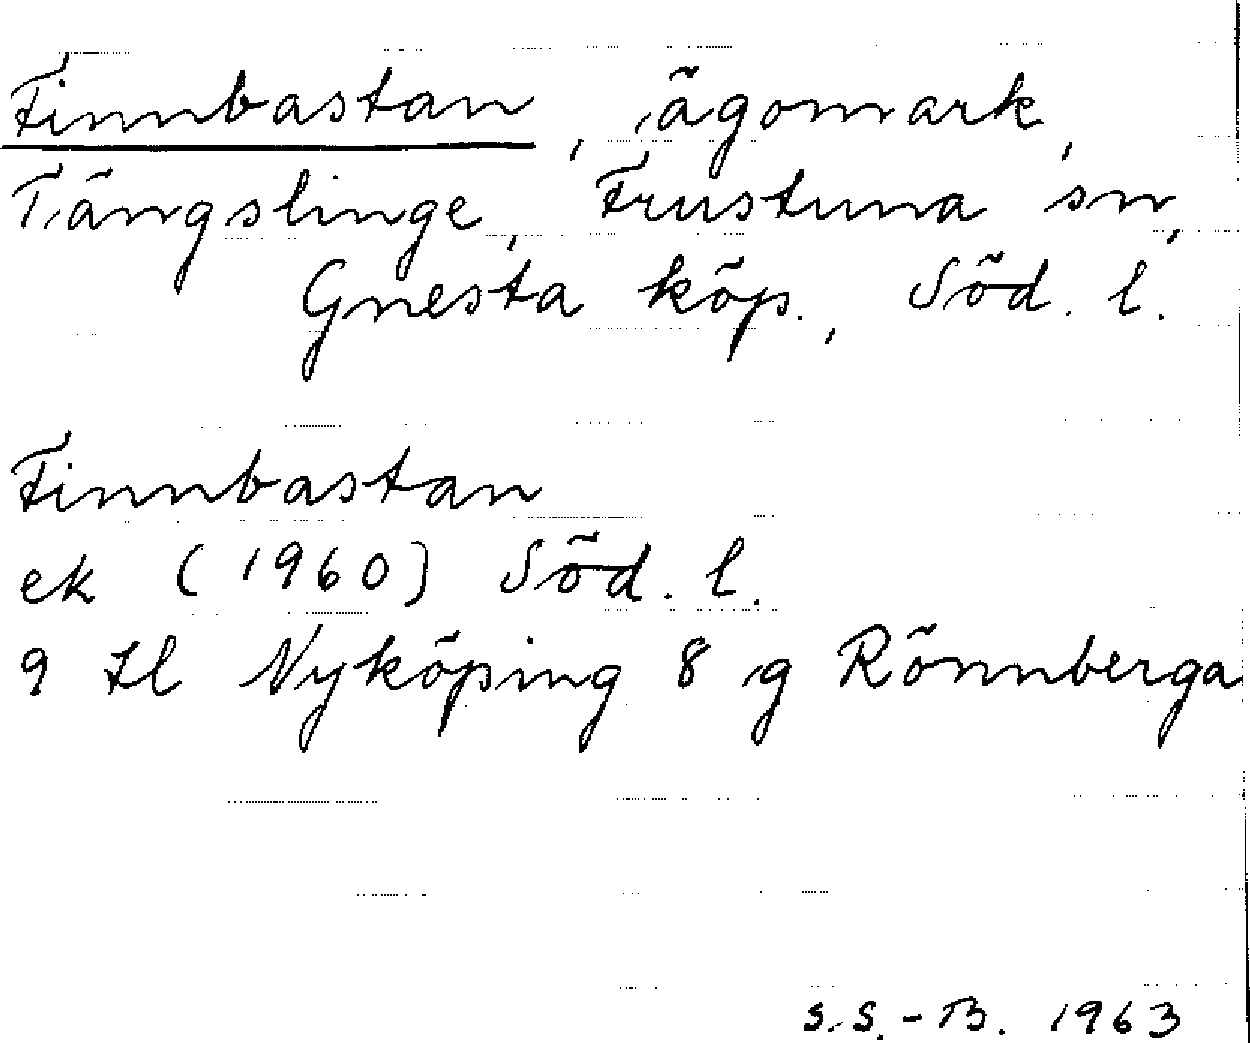 Finnbastan, ägomark,
Tängslinge, Frustuna sn,
Gnesta köp., Söd. l.
Finnbastan
ek (1960) Söd. l.
9 Il Nyköping 8 g Rönnberga
S.S.-B. 1963